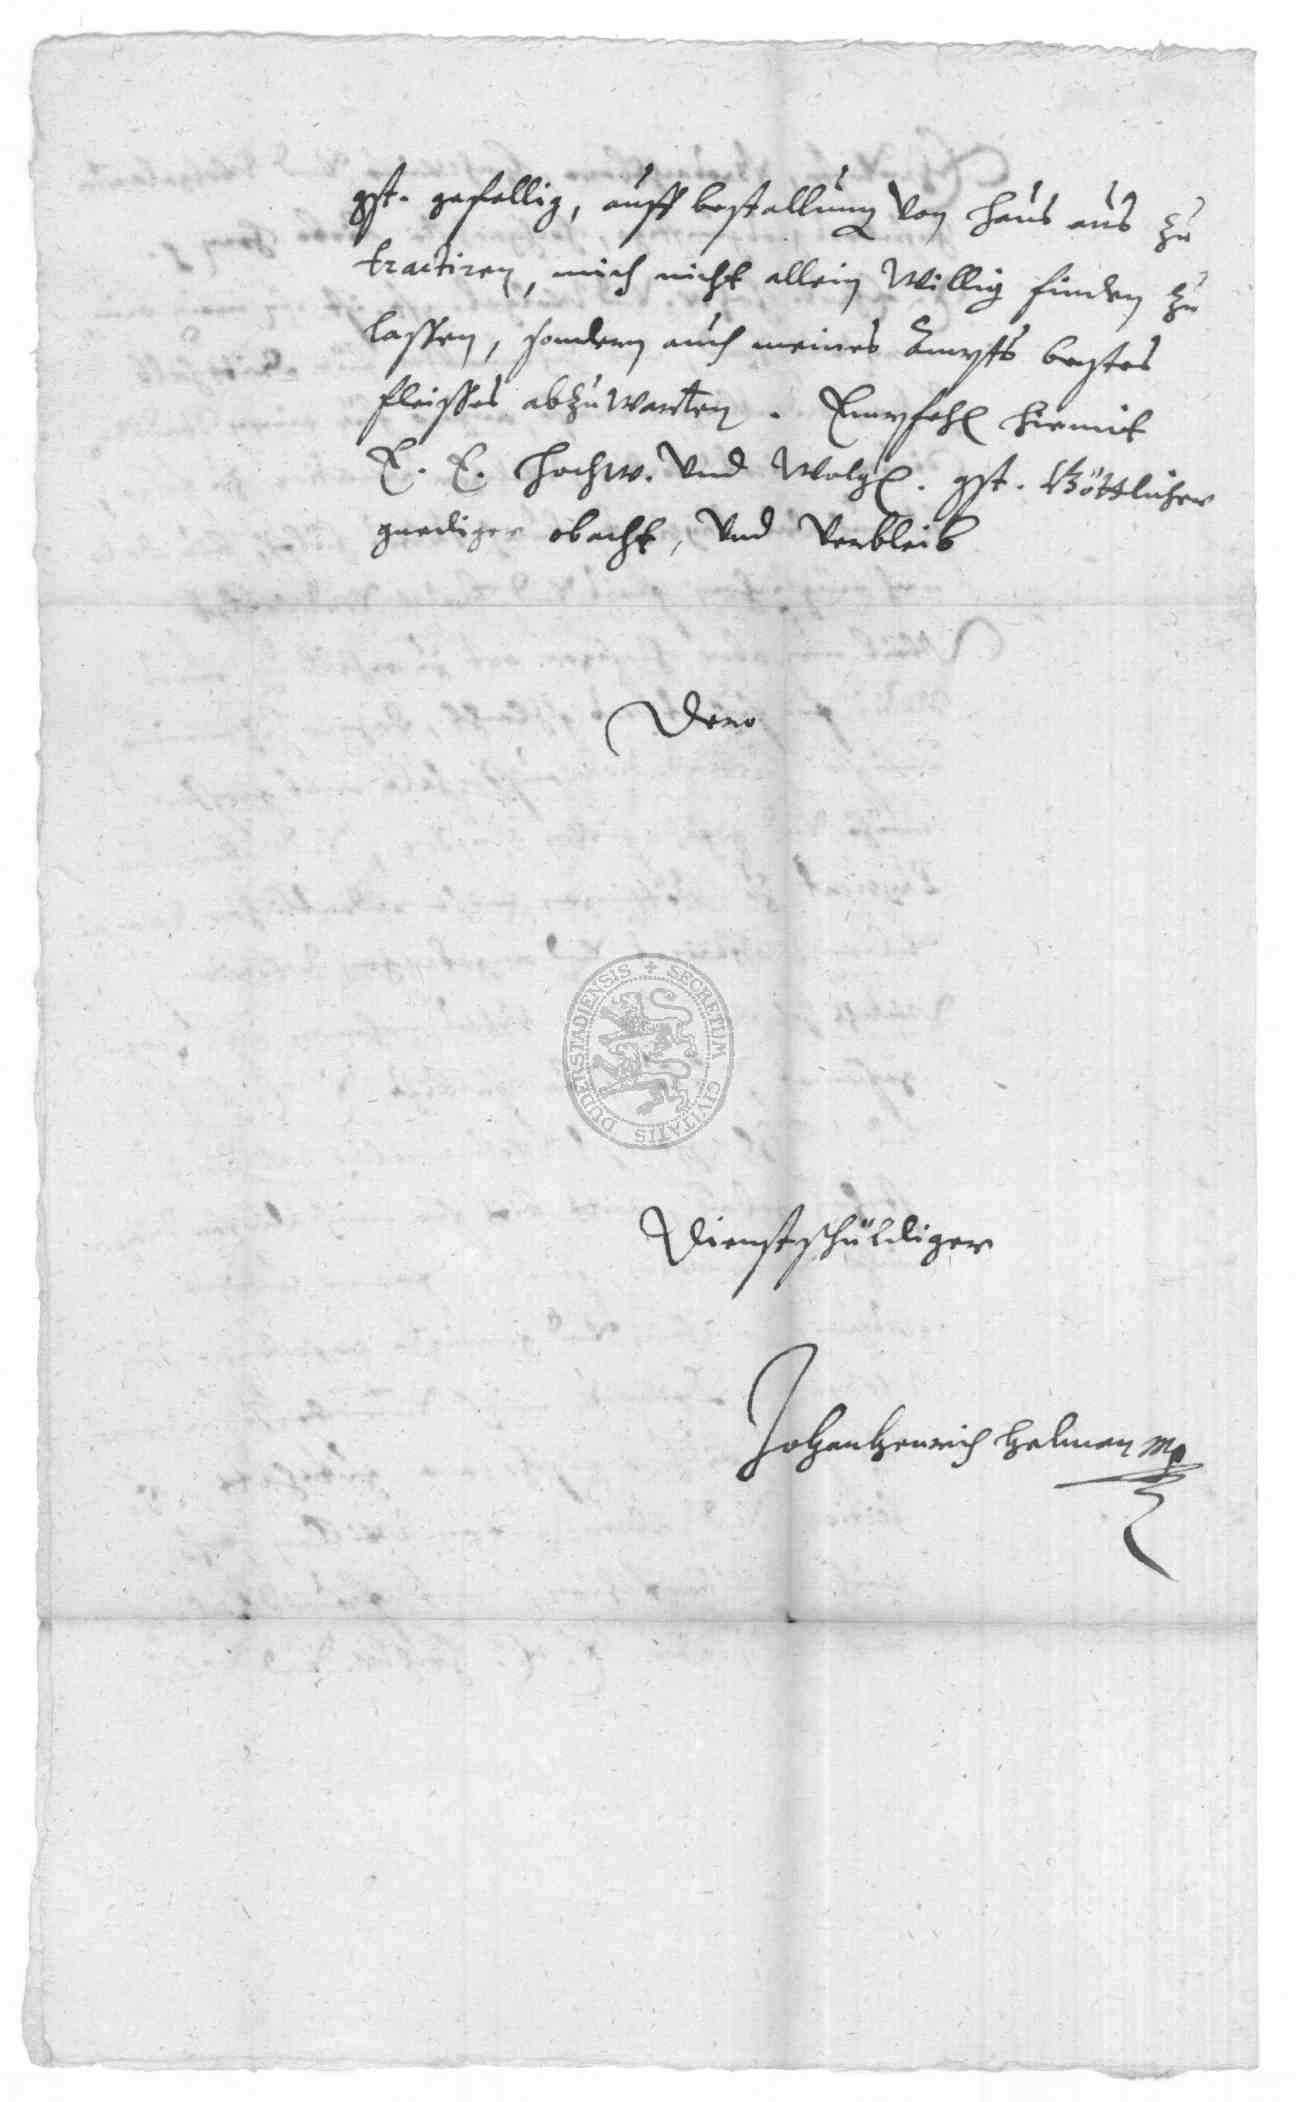 gst. gefellig, auff bestallung von Haus aus zu
tractiren, mich nicht allein Willig finden zu
lassen, sondern auch meines Ampts bestes
fleisses abzuwarten. Empfehl hiemit
E. E. Hochw. und Wolgl. gst. Göttlicher
gnediger obacht, und verbleib
Dero
Dienstschüldiger
JohanHenrich Helman mp
SECRETUM CIVITATIS DUDERSTADIENSIS